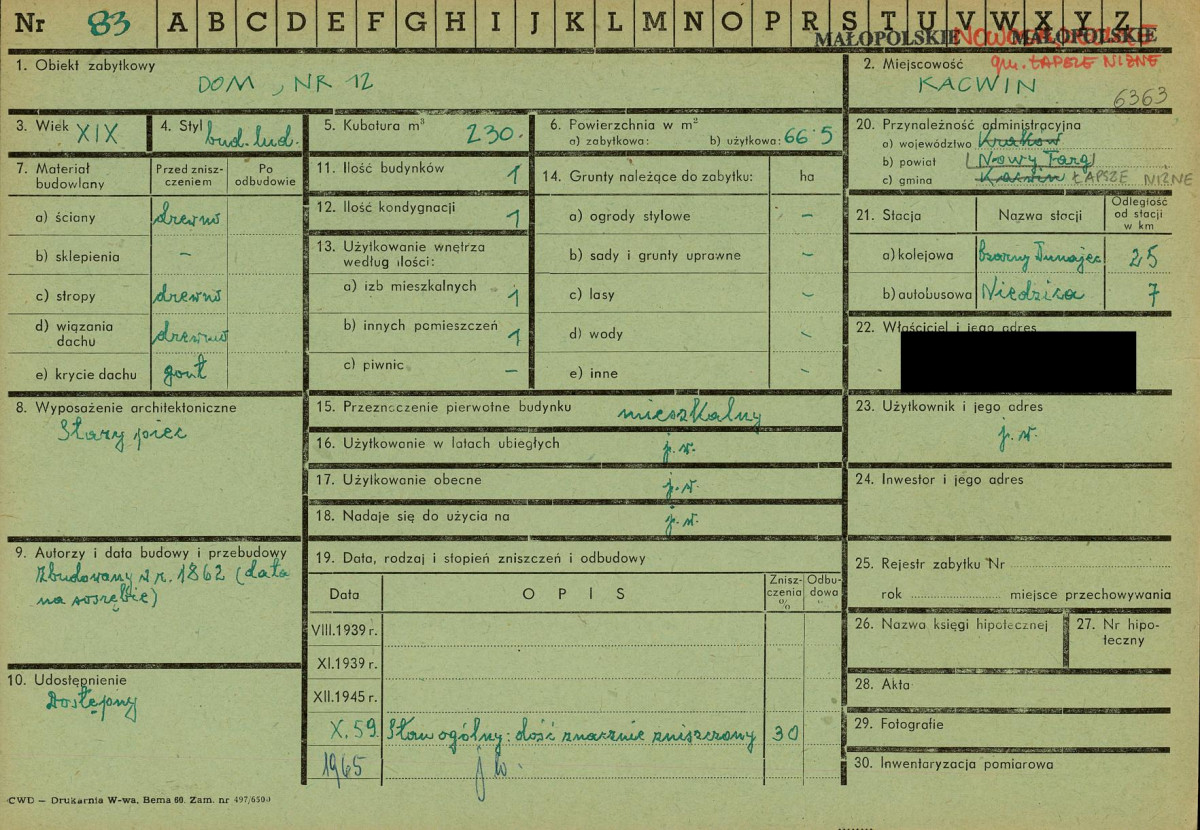 Nr 83 A B C D E F G H I J K L M N O P R S T U V W X Y Z
MAŁOPOLSKIE MAŁOPOLSKIE
1. Obiekt zabytkowy
DOM, NR 12
2. Miejscowość gm. ŁAPSZE NIŻNE
KACWIN
6363
3. Wiek XIX
4. Styl bud. lud.
5. Kubatura m³ 230.
6. Powierzchnia w m²
a) zabytkowa: b) użytkowa: 66 5
7. Materiał budowlany
Przed zniszczeniem
Po odbudowie
a) ściany drewno
b) sklepienia –
c) stropy drewno
d) wiązania dachu drewno
e) krycie dachu gont
8. Wyposażenie architektoniczne
Stary piec
9. Autorzy i data budowy i przebudowy
Zbudowany z r. 1862 (data
na sosrębie)
10. Udostępnienie
Dostępny
11. Ilość budynków 1
12. Ilość kondygnacji 1
13. Użytkowanie wnętrza
według ilości:
a) izb mieszkalnych 1
b) innych pomieszczeń 1
c) piwnic –
14. Grunty należące do zabytku: ha
a) ogrody stylowe –
b) sady i grunty uprawne –
c) lasy –
d) wody –
e) inne –
15. Przeznaczenie pierwotne budynku mieszkalny
16. Użytkowanie w latach ubiegłych j.w.
17. Użytkowanie obecne j.w.
18. Nadaje się do użycia na j.w.
19. Data, rodzaj i stopień zniszczeń i odbudowy
Data OPIS Zniszczenia % Odbudowa %
VIII.1939 r.
XI.1939 r.
XII.1945 r.
X.59. Stan ogólny: dość znacznie zniszczony 30
1965 j w.
20. Przynależność administracyjna
a) województwo Kraków
b) powiat (Nowy Targ)
c) gmina Kacwin ŁAPSZE NIŻNE
21. Stacja Nazwa stacji Odległość od stacji w km
a) kolejowa Czarny Dunajec 25
b) autobusowa Niedzica 7
22. Właściciel i jego adres
23. Użytkownik i jego adres
j.w.
24. Inwestor i jego adres
25. Rejestr zabytku Nr
rok miejsce przechowywania
26. Nazwa księgi hipotecznej
27. Nr hipoteczny
28. Akta
29. Fotografie
30. Inwentaryzacja pomiarowa
CWD – Drukarnia W-wa, Bema 60. Zam. nr 497/6500